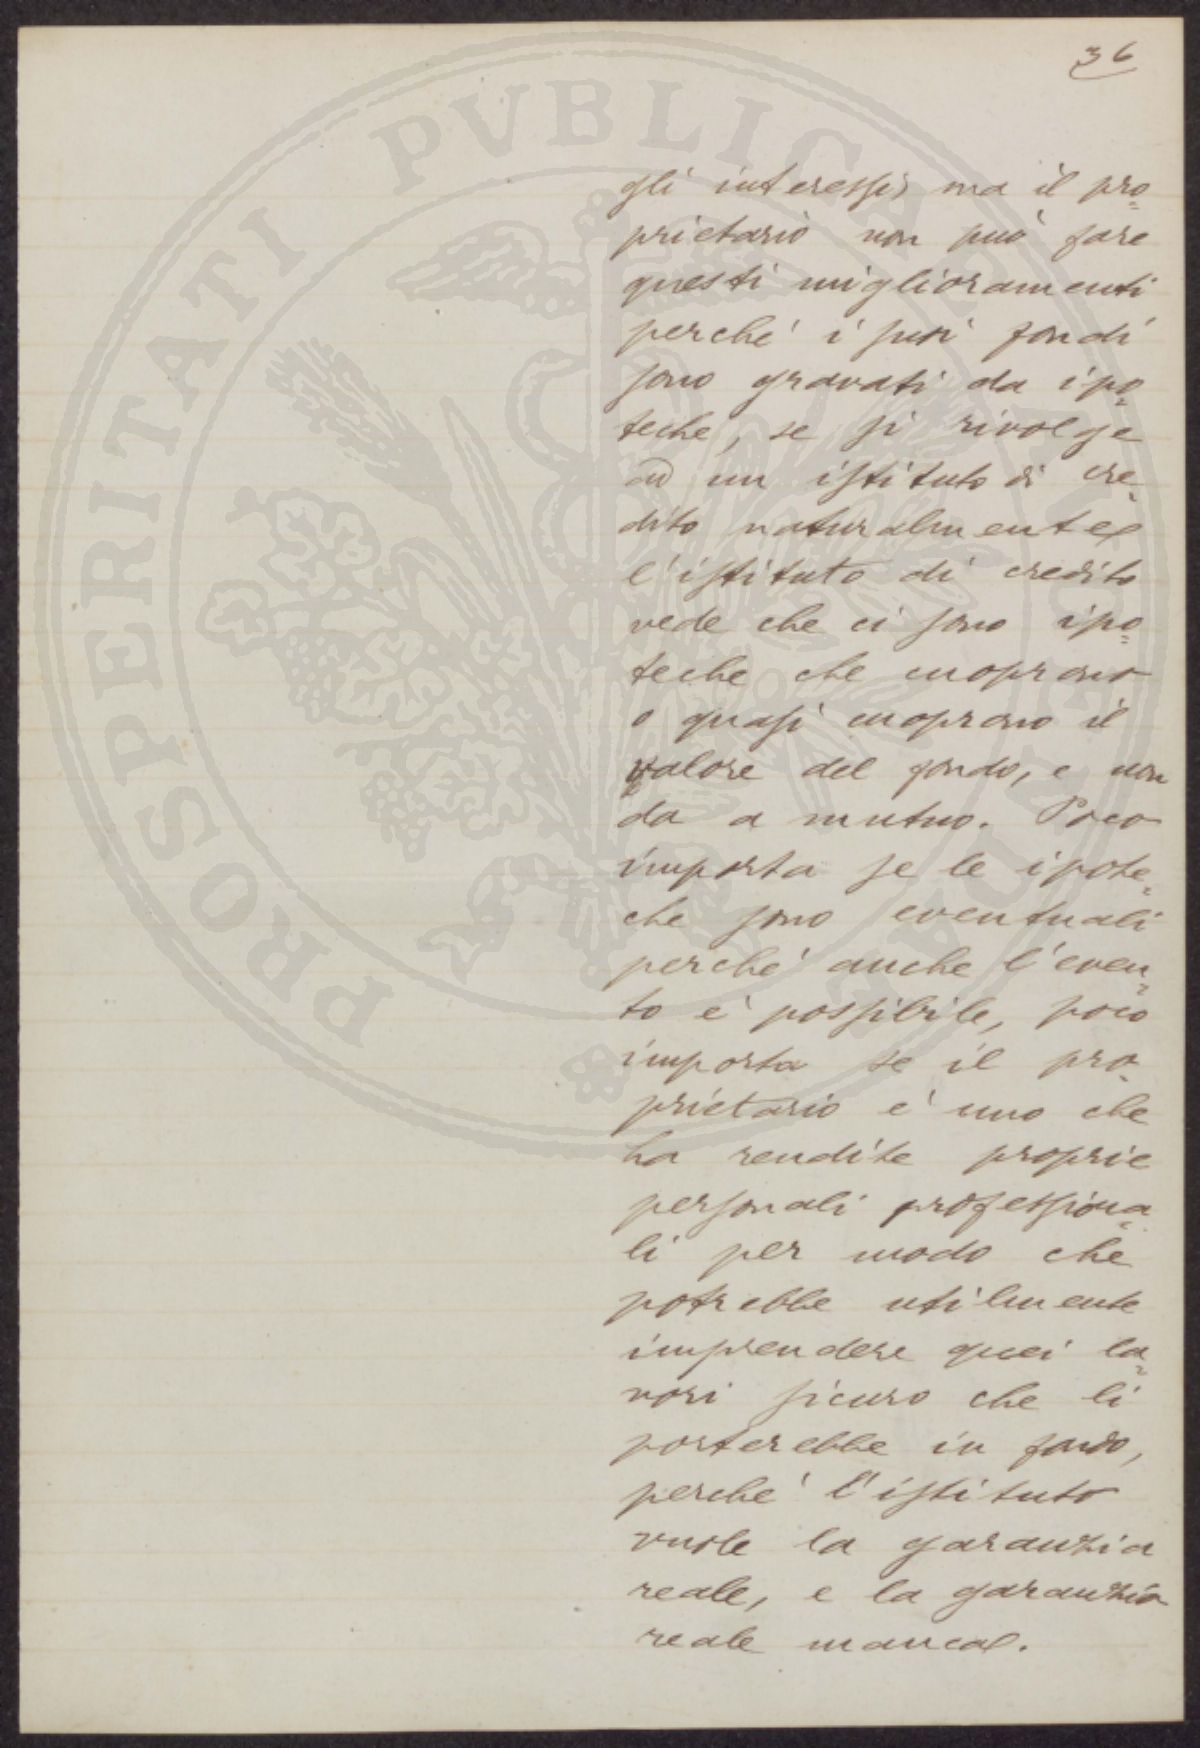 36
gli interessi, ma il pro=
prietario non può fare
questi miglioramenti
perché i suoi fondi
sono gravati da ipo=
teche, se si rivolge
ad un istituto di cre=
dito naturalmente
l'istituto di credito
vede che ci sono ipo=
teche che cuoprono
o quasi cuoprono il
valore del fondo, e non
da a mutuo. Poco
importa se le ipote=
che sono eventuali
perché anche l'even=
to è possibile, poco
importa se il pro=
prietario è uno che
ha rendite proprie
personali professiona=
li per modo che
potrebbe utilmente
imprendere quei la=
vori sicuro che li
porterebbe in fondo,
perché l'istituto
vuole la garanzia
reale, e la garanzia
reale manca.
PROSPERITATI PVBLICAE